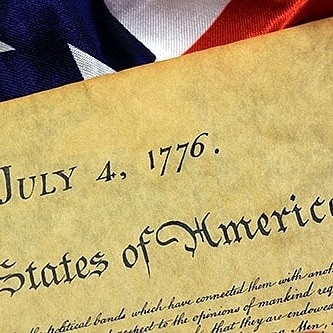 JULY 4, 1776.
States of America
political bands which have connected them with
respect to the opinions of mankind
that they are endowed